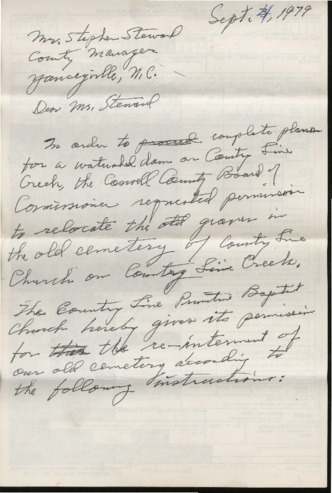 Sept. 4, 1979
Mr. Stephen Steward
County Manager
Yanceyville, N.C.
Dear Mr. Steward
In order to proceed complete plans
for a watershed dam on County Line
Creek, the Caswell County Board of
Comissioner requested permission
to relocate the old graves in
the old cemetery of County Line
Church on Country Line Creek.
The Country Line Primitive Baptist
Church hereby gives its permission
for this the re-interment of
our old cemetery according to
the following instructions: